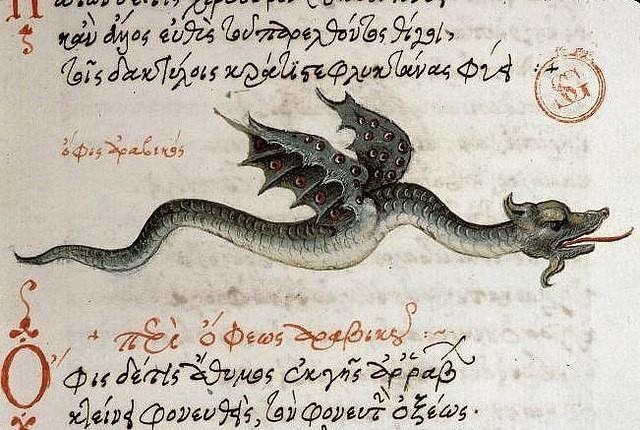 κἂν ἄλλος εὐθὺς τοῦ παρελθόντος θίγῃ,
τοῖς δακτύλοις κράτιστε φλυκταίνας
ὄφις ἀραβικός
+ περὶ ὄφεως ἀραβικοῦ :~
Ὄφις δέ τις ἄθυμος ἐκ γῆς ἀρράβ
κτείνει φονευθείς, τὸν φονευτὴν ὀξέως.